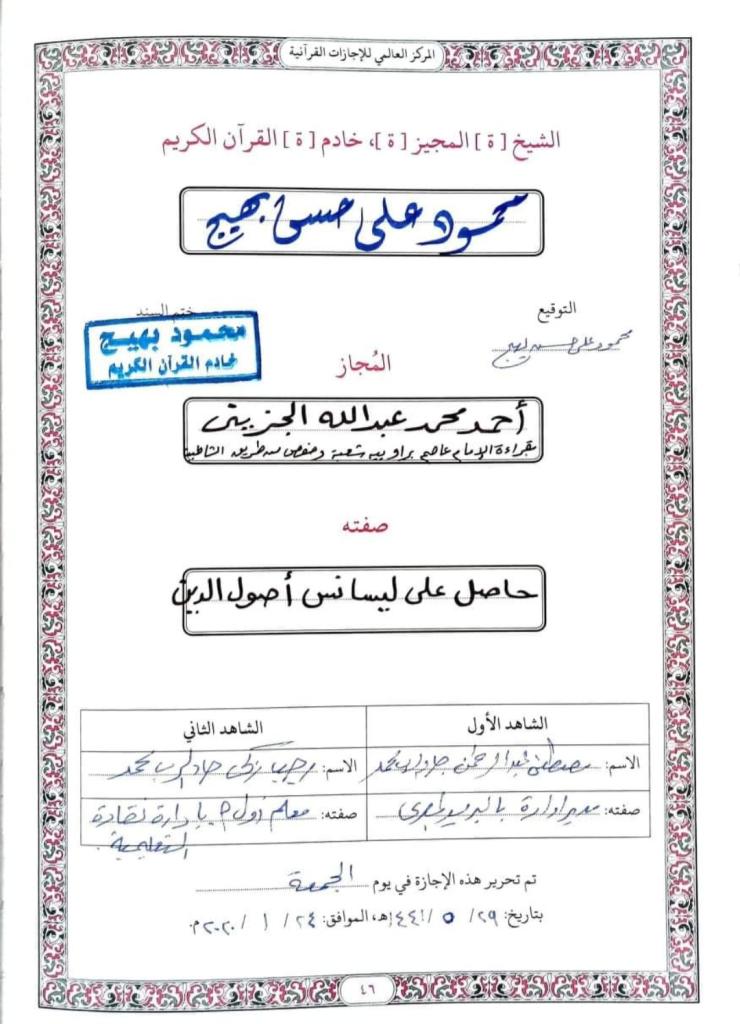 المركز العالمي للإجازات القرآنية
الشيخ [ ة ] المجيز [ ة ]، خادم [ ة ] القرآن الكريم
محمود على حسن بهيج
التوقيع
ختم السند
محمود على حسن بهيج
محمود بهيج
خادم القرآن الكريم
المُجاز
أحمد محمد عبدالله الجزيتى
بقراءة الإمام عاصم براوييه شعبة وحفص من طريق الشاطبية
صفته
حاصل على ليسانس أصول الدين
الشاهد الأول
الشاهد الثاني
الاسم: مصطفى عبدالرحمن جاد الرب محمد
الاسم: رجب زكى جاد الرب محمد
صفته: مدير إدارة بالبريد المصرى
صفته: معلم أول م بإدارة نقادة
التعليمية
تم تحرير هذه الإجازة في يوم الجمعة
بتاريخ: ٢٩/ ٥ /١٤٤١هـ، الموافق: ٢٤/ ١ /٢٠٢٠م.
٤٦